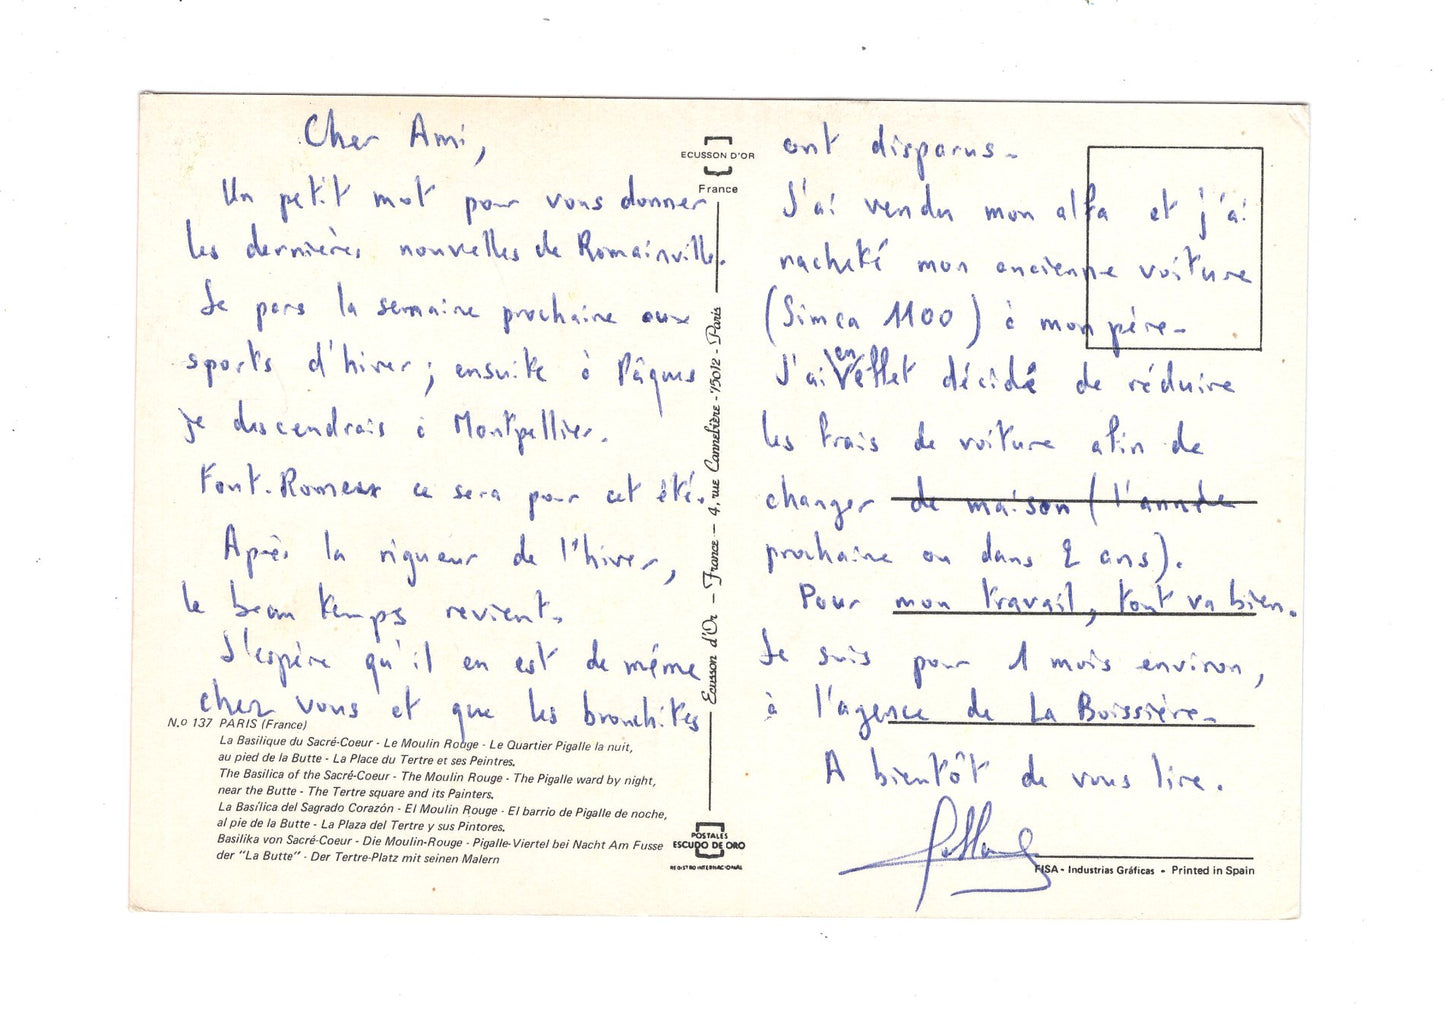 Cher Ami,
Un petit mot pour vous donner
les dernières nouvelles de Romainville.
Je pars la semaine prochaine aux
sports d'hiver ; ensuite à Pâques
je descendrais à Montpellier.
Font-Romeux ce sera pour cet été.
Après la rigueur de l'hiver,
le beau temps revient.
J'espère qu'il en est de même
chez vous et que les bronchites
N.º 137 PARIS (France)
La Basilique du Sacré-Coeur - Le Moulin Rouge - Le Quartier Pigalle la nuit,
au pied de la Butte - La Place du Tertre et ses Peintres.
The Basilica of the Sacré-Coeur - The Moulin Rouge - The Pigalle ward by night,
near the Butte - The Tertre square and its Painters.
La Basílica del Sagrado Corazón - El Moulin Rouge - El barrio de Pigalle de noche,
al pie de la Butte - La Plaza del Tertre y sus Pintores.
Basilika von Sacré-Coeur - Die Moulin-Rouge - Pigalle-Viertel bei Nacht Am Fusse
der "La Butte" - Der Tertre-Platz mit seinen Malern
ECUSSON D'OR
France
Ecusson d'Or — France — 4, rue Cannebière - 75012 - Paris
POSTALES
ESCUDO DE ORO
REGISTRO INTERNACIONAL
ont disparus.
J'ai vendu mon alfa et j'ai
racheté mon ancienne voiture
(Simca 1100) à mon père.
J'ai en effet décidé de réduire
les frais de voiture afin de
changer de maison (l'année
prochaine ou dans 2 ans).
Pour mon travail, tout va bien.
Je suis pour 1 mois environ,
à l'agence de La Boissière.
A bientôt de vous lire.
FISA - Industrias Gráficas - Printed in Spain